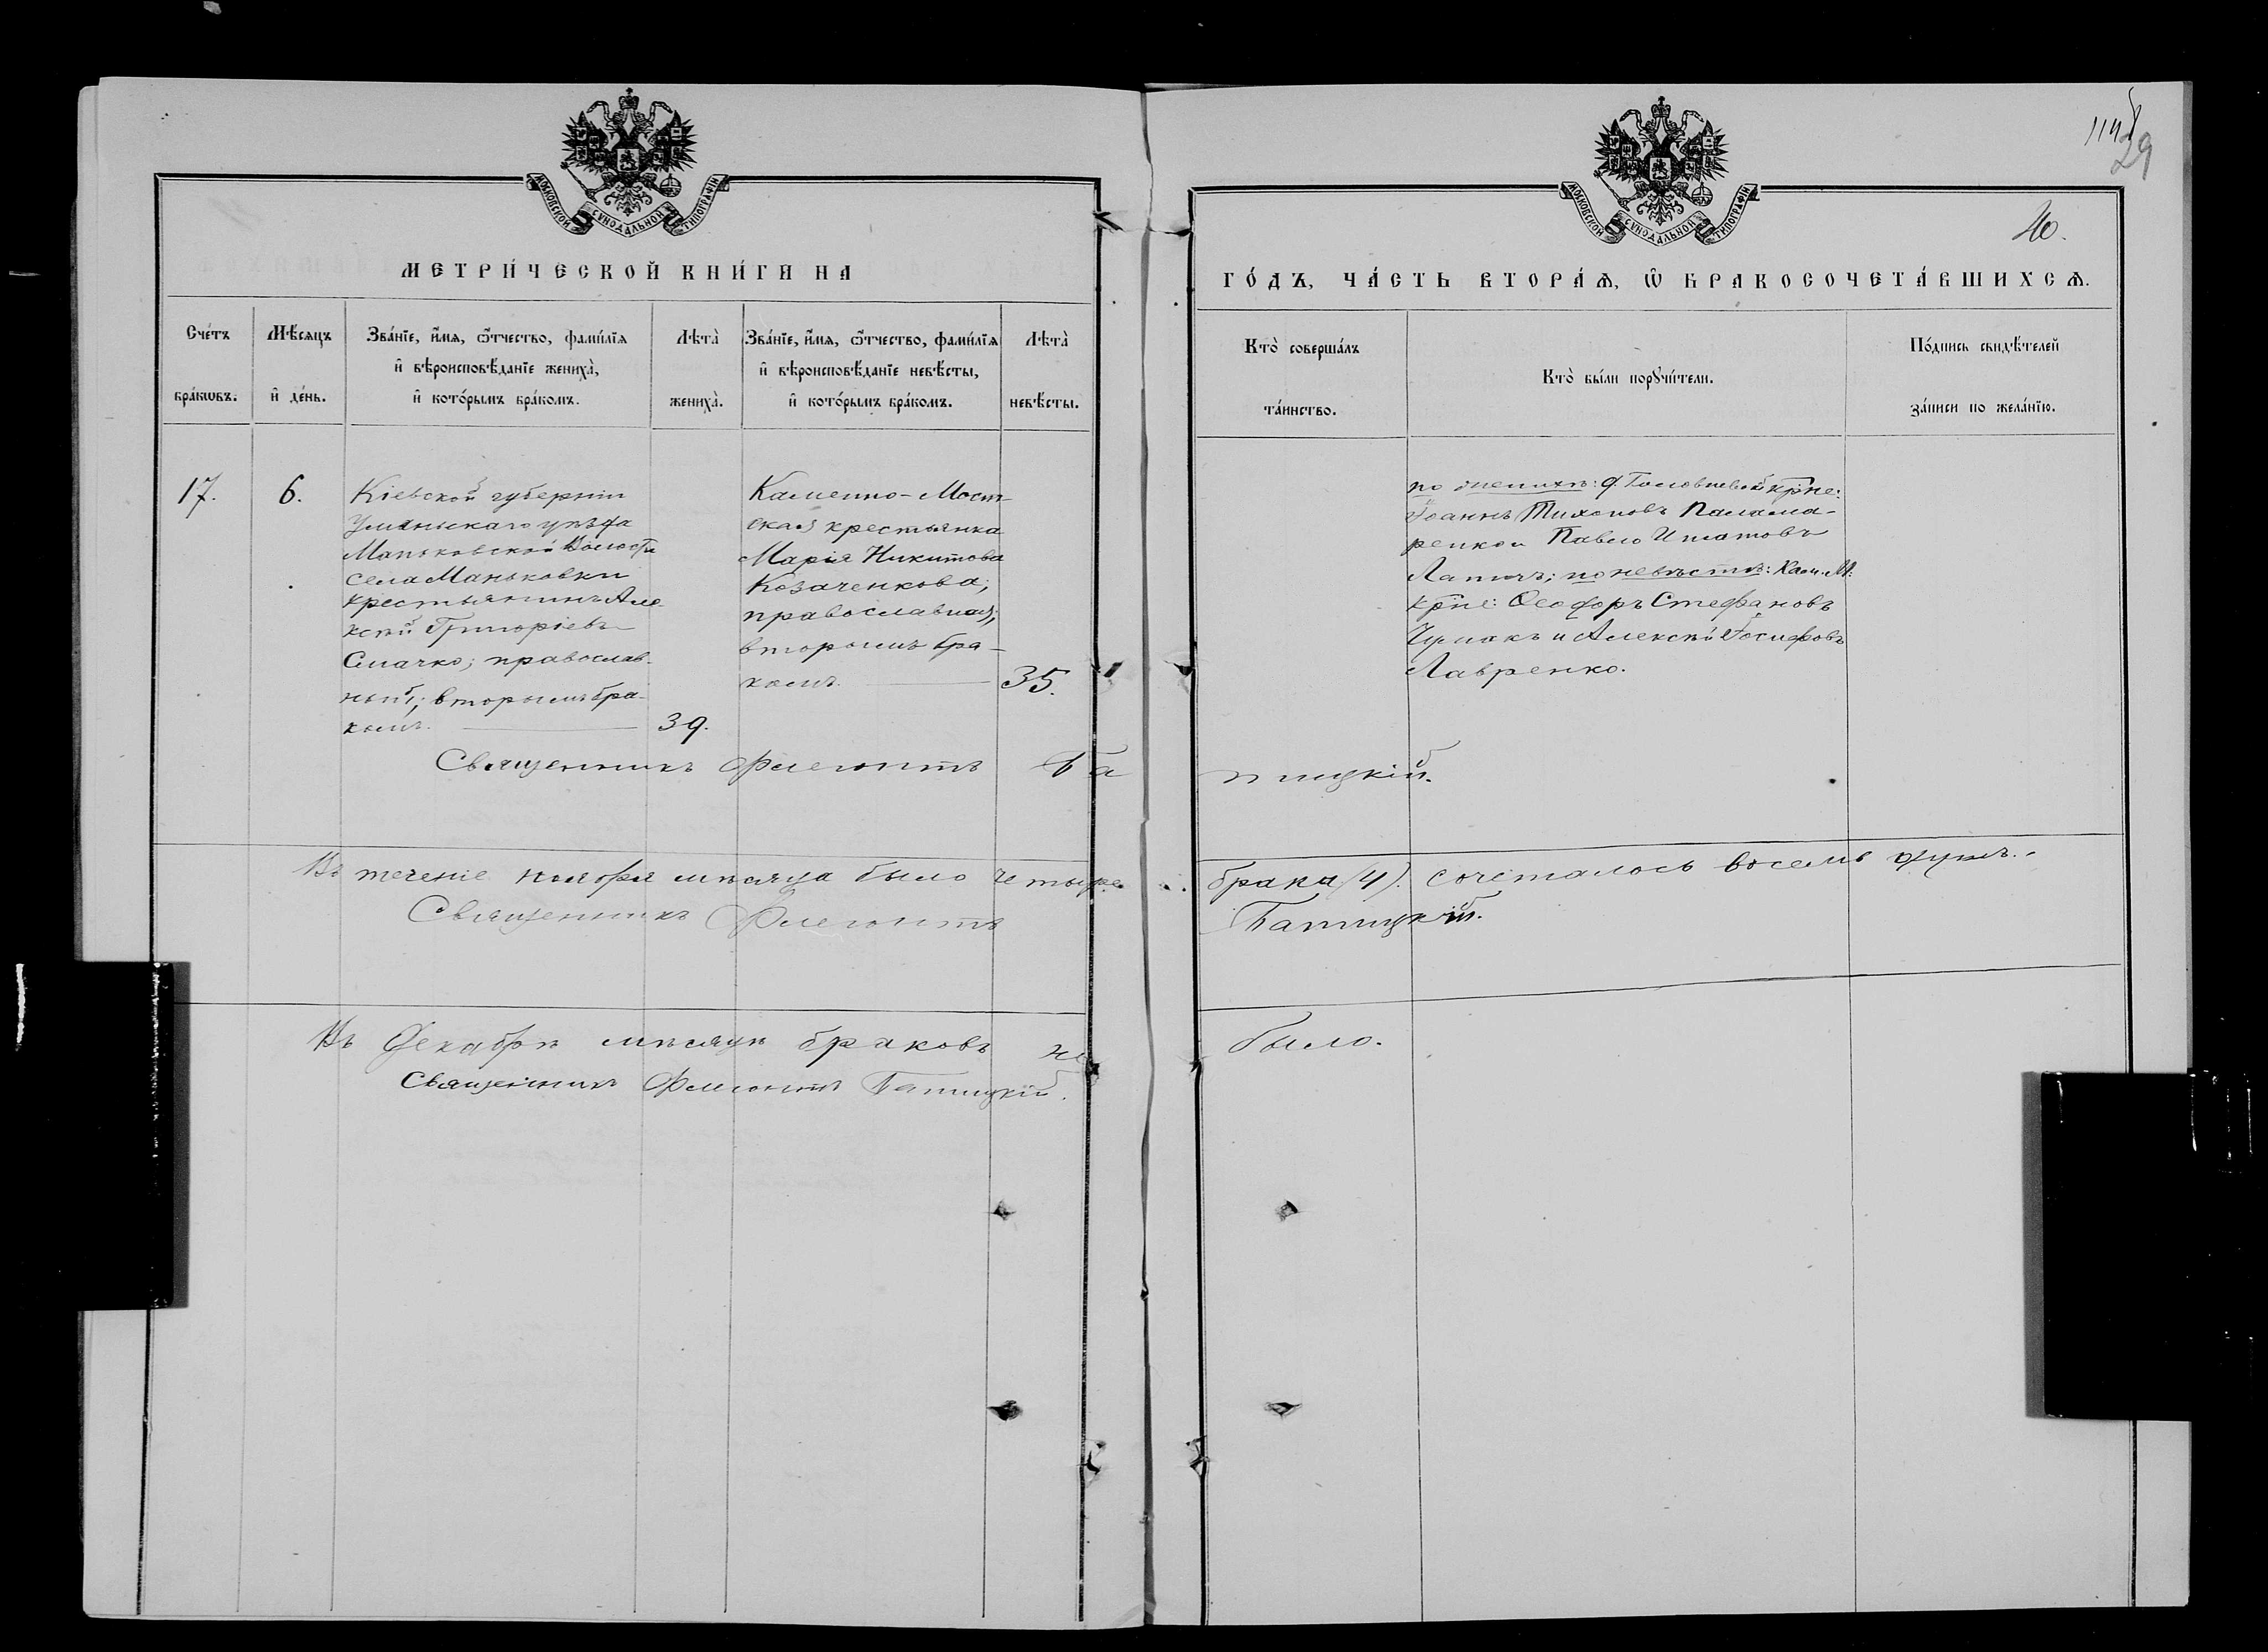 МОСКОВСКОЙ СѴНОДАЛЬНОЙ ТИПОГРАФІИ
МЕТРИ́ЧЕСКОЙ КНИ́ГИ НА
Сче́тъ бра́кѡвъ.
Мѣ́сяцъ и҆ де́нь.
Зва́нїе, и҆́мѧ, ѻ҆́тчество, фами́лїѧ
и҆ вѣроисповѣ́данїе жениха̀,
и҆ кото́рымъ бра́комъ.
Лѣта̀ жениха̀.
Зва́нїе, и҆́мѧ, ѻ҆́тчество, фами́лїѧ
и҆ вѣроисповѣ́данїе невѣ́сты,
и҆ кото́рымъ бра́комъ.
Лѣта̀ невѣ́сты.
17.
6.
Кіевской губерніи
Уманьскаго уѣзда
Маньковской Волости
села Маньковки
крестьянинъ Але-
ксѣй Григоріевъ
Смачко; православ-
ный; вторымъ бра-
комъ.
39.
Каменно-Мост-
ская крестьянка
Марія Никитова
Козаченкова;
православная;
вторымъ бра-
комъ.
35.
Священникъ Флегонтъ Ба
Въ теченіе ноября мѣсяца было четыре
Священникъ Флегонтъ
Въ Декабрѣ мѣсяцѣ браковъ не
Священникъ Флегонтъ Бапицкій.
114
29
МОСКОВСКОЙ СѴНОДАЛЬНОЙ ТИПОГРАФІИ
20.
ГО́ДЪ, ЧА́СТЬ ВТОРА́Ѧ, Ѡ҆ БРАКОСОЧЕТА́ВШИХСѦ.
Кто̀ соверша́лъ
та́инство.
Кто̀ бы́ли порꙋчи́тели.
По́дпись свидѣ́телей
за́писи по жела́нїю.
по женихѣ: д. кр҃не:
Іоаннъ Тихоновъ Палама-
ренко и Павло Игнатовъ
по невѣстѣ: Кам. М:
кр҃не: Ѳеодоръ Стефановъ
Чумакъ и Алексѣй Іосифовъ
Лавренко.
пицкій.
брака (4). сочеталось восемь душъ.
Бапицкій.
было.